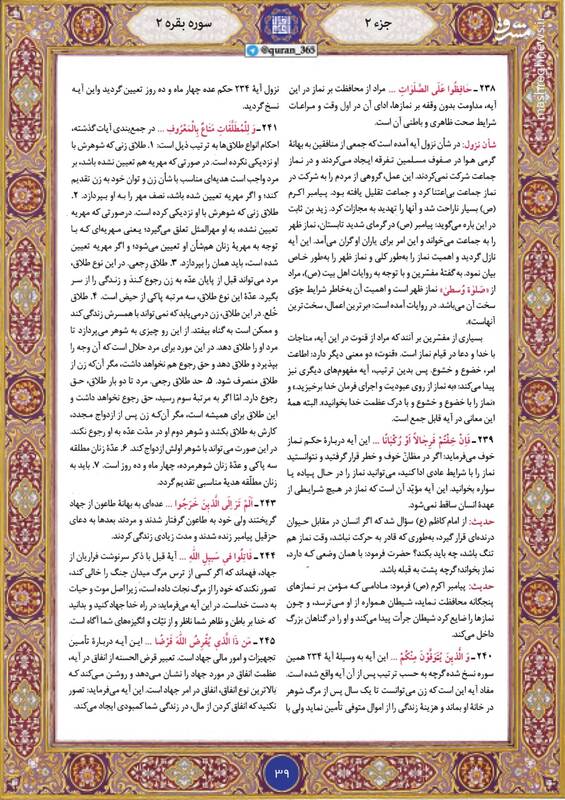 جزء ۲
سوره بقره ۲
@quran_365
مشرق
mashreghnews.ir
۲۳۸ـ حَافِظُوا عَلَى الصَّلَوَاتِ ... مراد از محافظت بر نماز در این
آیه، مداومت بدون وقفه بر نمازها، ادای آن در اول وقت و مراعات
شرایط صحت ظاهری و باطنی آن است.
شأن نزول: در شأن نزول آیه آمده است که جمعی از منافقین به بهانهٔ
گرمی هوا در صفوف مسلمین تفرقه ایجاد می‌کردند و در نماز
جماعت شرکت نمی‌کردند. این عمل، گروهی از مردم را به شرکت در
نماز جماعت بی‌اعتنا کرد و جماعت تقلیل یافته بود. پیامبر اکرم
(ص) بسیار ناراحت شد و آنها را تهدید به مجازات کرد. زید بن ثابت
در این باره می‌گوید: پیامبر (ص) در گرمای شدید تابستان، نماز ظهر
را به جماعت می‌خواند و این امر برای یاران او گران می‌آمد. این آیه
نازل گردید و اهمیت نماز را به‌طور کلی و نماز ظهر را به‌طور خاص
بیان نمود. به گفتهٔ مفسّرین و با توجه به روایات اهل بیت (ص)، مراد
از «صَلوٰةِ وُسطیٰ» نماز ظهر است و اهمیت آن به‌خاطر شرایط جوّی
سخت آن می‌باشد. در روایات آمده است: «برترین اعمال، سخت‌ترین
آنهاست».
بسیاری از مفسّرین بر آنند که مراد از قنوت در این آیه، مناجات
با خدا و دعا در قیام نماز است. «قنوت» دو معنی دیگر دارد: اطاعت
امر، خضوع و خشوع. پس بدین ترتیب، آیه مفهوم‌های دیگری نیز
پیدا می‌کند: «به نماز از روی عبودیت و اجرای فرمان خدا برخیزید.» و
«نماز را با خضوع و خشوع و با درک عظمت خدا بخوانید». البته همهٔ
این معانی در آیه قابل جمع است.
۲۳۹ـ فَإِنْ خِفْتُمْ فَرِجَالًا أَوْ رُكْبَانًا ... این آیه دربارهٔ حکم نماز
خوف می‌فرماید: اگر در مظانّ خوف و خطر قرار گرفتید و نتوانستید
نماز را با شرایط عادی ادا کنید، می‌توانید نماز را در حال پیاده یا
سواره بخوانید. این آیه مؤیّد آن است که نماز در هیچ شرایطی از
عهدهٔ انسان ساقط نمی‌شود.
حدیث: از امام کاظم (ع) سؤال شد که اگر انسان در مقابل حیوان
درنده‌ای قرار گیرد، به‌طوری که قادر به حرکت نباشد، وقت نماز هم
تنگ باشد، چه باید بکند؟ حضرت فرمود: با همان وضعی که دارد،
نماز بخواند؛ گرچه پشت به قبله باشد.
حدیث: پیامبر اکرم (ص) فرمود: مادامی که مؤمن بر نمازهای
پنجگانه محافظت نماید، شیطان همواره از او می‌ترسد، و چون
نمازها را ضایع کرد شیطان جرأت پیدا می‌کند و او را در گناهان بزرگ
داخل می‌کند.
۲۴۰ـ وَ الَّذِينَ يُتَوَفَّوْنَ مِنْكُمْ ... این آیه به وسیلهٔ آیهٔ ۲۳۴ همین
سوره نسخ شده گرچه به حسب ترتیب پس از آن آیه واقع شده است.
مفاد آیه این است که زن می‌توانست تا یک سال پس از مرگ شوهر
در خانهٔ او بماند و هزینهٔ زندگی را از اموال متوفی تأمین نماید ولی با
نزول آیهٔ ۲۳۴ حکم عده چهار ماه و ده روز تعیین گردید و این آیه
نسخ گردید.
۲۴۱ـ وَ لِلْمُطَلَّقَاتِ مَتَاعٌ بِالْمَعْرُوفِ ... در جمع‌بندی آیات گذشته،
احکام انواع طلاق‌ها به ترتیب ذیل است: ۱. طلاق زنی که شوهرش با
او نزدیکی نکرده است. در صورتی که مهریه هم تعیین نشده باشد، بر
مرد واجب است هدیه‌ای مناسب با شأن زن و توان خود به زن تقدیم
کند؛ و اگر مهریه تعیین شده باشد، نصف مهر را به او بپردازد. ۲.
طلاق زنی که شوهرش با او نزدیکی کرده است. درصورتی که مهریه
تعیین نشده، به او مهرالمثل تعلق می‌گیرد؛ یعنی مهریه‌ای که با
توجه به مهریهٔ زنان هم‌شأن او تعیین می‌شود؛ و اگر مهریه تعیین
شده است، باید همان را بپردازد. ۳. طلاق رِجعی. در این نوع طلاق،
مرد می‌تواند قبل از پایان عدّه به زن رجوع کند و زندگی را از سر
بگیرد. عدّهٔ این نوع طلاق، سه مرتبه پاکی از حیض است. ۴. طلاق
خُلع. در این طلاق، زن درمی‌یابد که نمی‌تواند با همسرش زندگی کند
و ممکن است به گناه بیفتد. از این رو چیزی به شوهر می‌پردازد تا
مرد او را طلاق دهد. در این مورد برای مرد حلال است که آن وجه را
بپذیرد و طلاق دهد و حق رجوع هم نخواهد داشت، مگر آن‌که زن از
طلاق منصرف شود. ۵. حد طلاق رجعی. مرد تا دو بار طلاق، حق
رجوع دارد. امّا اگر به مرتبهٔ سوم رسید، حق رجوع نخواهد داشت و
این طلاق برای همیشه است، مگر آن‌که زن پس از ازدواج مجدد،
کارش به طلاق بکشد و شوهر دوم او در مدّت عدّه به او رجوع نکند.
در این صورت می‌تواند با شوهر اولش ازدواج کند. ۶. عدّهٔ زنان مطلقه
سه پاکی و عدّهٔ زنان شوهرمرده، چهار ماه و ده روز است. ۷. باید به
زنان مطلقه هدیهٔ مناسبی تقدیم گردد.
۲۴۳ـ أَلَمْ تَرَ إِلَى الَّذِينَ خَرَجُوا ... عده‌ای به بهانهٔ طاعون از جهاد
گریختند ولی خود به طاعون گرفتار شدند و مردند بعدها به دعای
حزقیل پیامبر زنده شدند و مدت زیادی زندگی کردند.
۲۴۴ـ قَاتِلُوا فِي سَبِيلِ اللَّهِ ... آیهٔ قبل با ذکر سرنوشت فراریان از
جهاد، فهماند که اگر کسی از ترس مرگ میدان جنگ را خالی کند،
تصور نکند که خود را از مرگ نجات داده است، زیرا اصل موت و حیات
به دست خداست. در این آیه می‌فرماید: در راه خدا جهاد کنید و بدانید
که خدا بر باطن و ظاهر شما ناظر و از نیّات و انگیزه‌های شما آگاه است.
۲۴۵ـ مَن ذَا الَّذِي يُقْرِضُ اللَّهَ قَرْضًا ... این آیه دربارهٔ تأمین
تجهیزات و امور مالی جهاد است. تعبیر قرض الحسنه از انفاق در آیه،
عظمت انفاق در مورد جهاد را نشان می‌دهد و روشن می‌کند که
بالاترین نوع انفاق، انفاق در امر جهاد است. این آیه می‌فرماید: تصور
نکنید که انفاق کردن از مال، در زندگی شما کمبودی ایجاد می‌کند.
۳۹